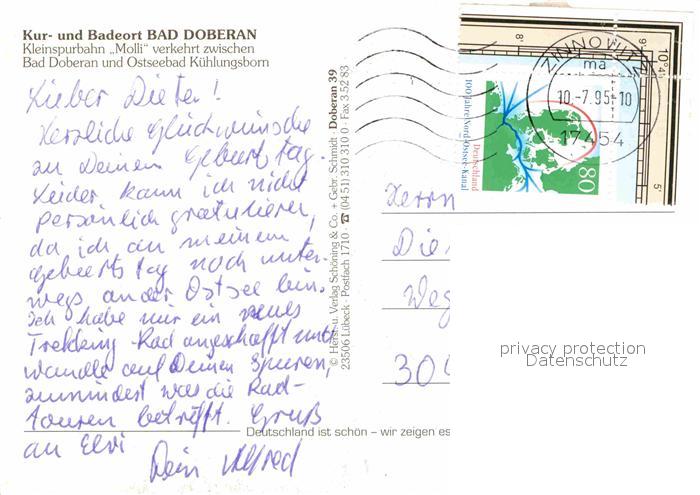 Kur- und Badeort BAD DOBERAN
Kleinspurbahn „Molli" verkehrt zwischen
Bad Doberan und Ostseebad Kühlungsborn
Lieber Dieter!
Herzliche Glückwünsche
zu Deinem Geburtstag.
Leider kann ich nicht
persönlich gratulieren,
da ich an meinem
Geburtstag noch unter-
wegs an der Ostsee bin.
Ich habe mir ein neues
Trekking-Rad angeschafft und
wandle auf Deinen Spuren,
zumindest was die Rad-
touren betrifft. Gruß
an Elvi
Dein Alfred
© Herst. u. Verlag Schöning & Co. + Gebr. Schmidt · Doberan 39
23506 Lübeck · Postfach 1710 · ☎ (04 51) 310 310 0 · Fax 3 52 83
ZINNOWITZ
ma
10.-7.95-10
17454
100 Jahre Nord-Ostsee-Kanal
Deutschland
80
8'
9'
10°4
5'
Herrn
Die
Weg
30
privacy protection
Datenschutz
Deutschland ist schön – wir zeigen es